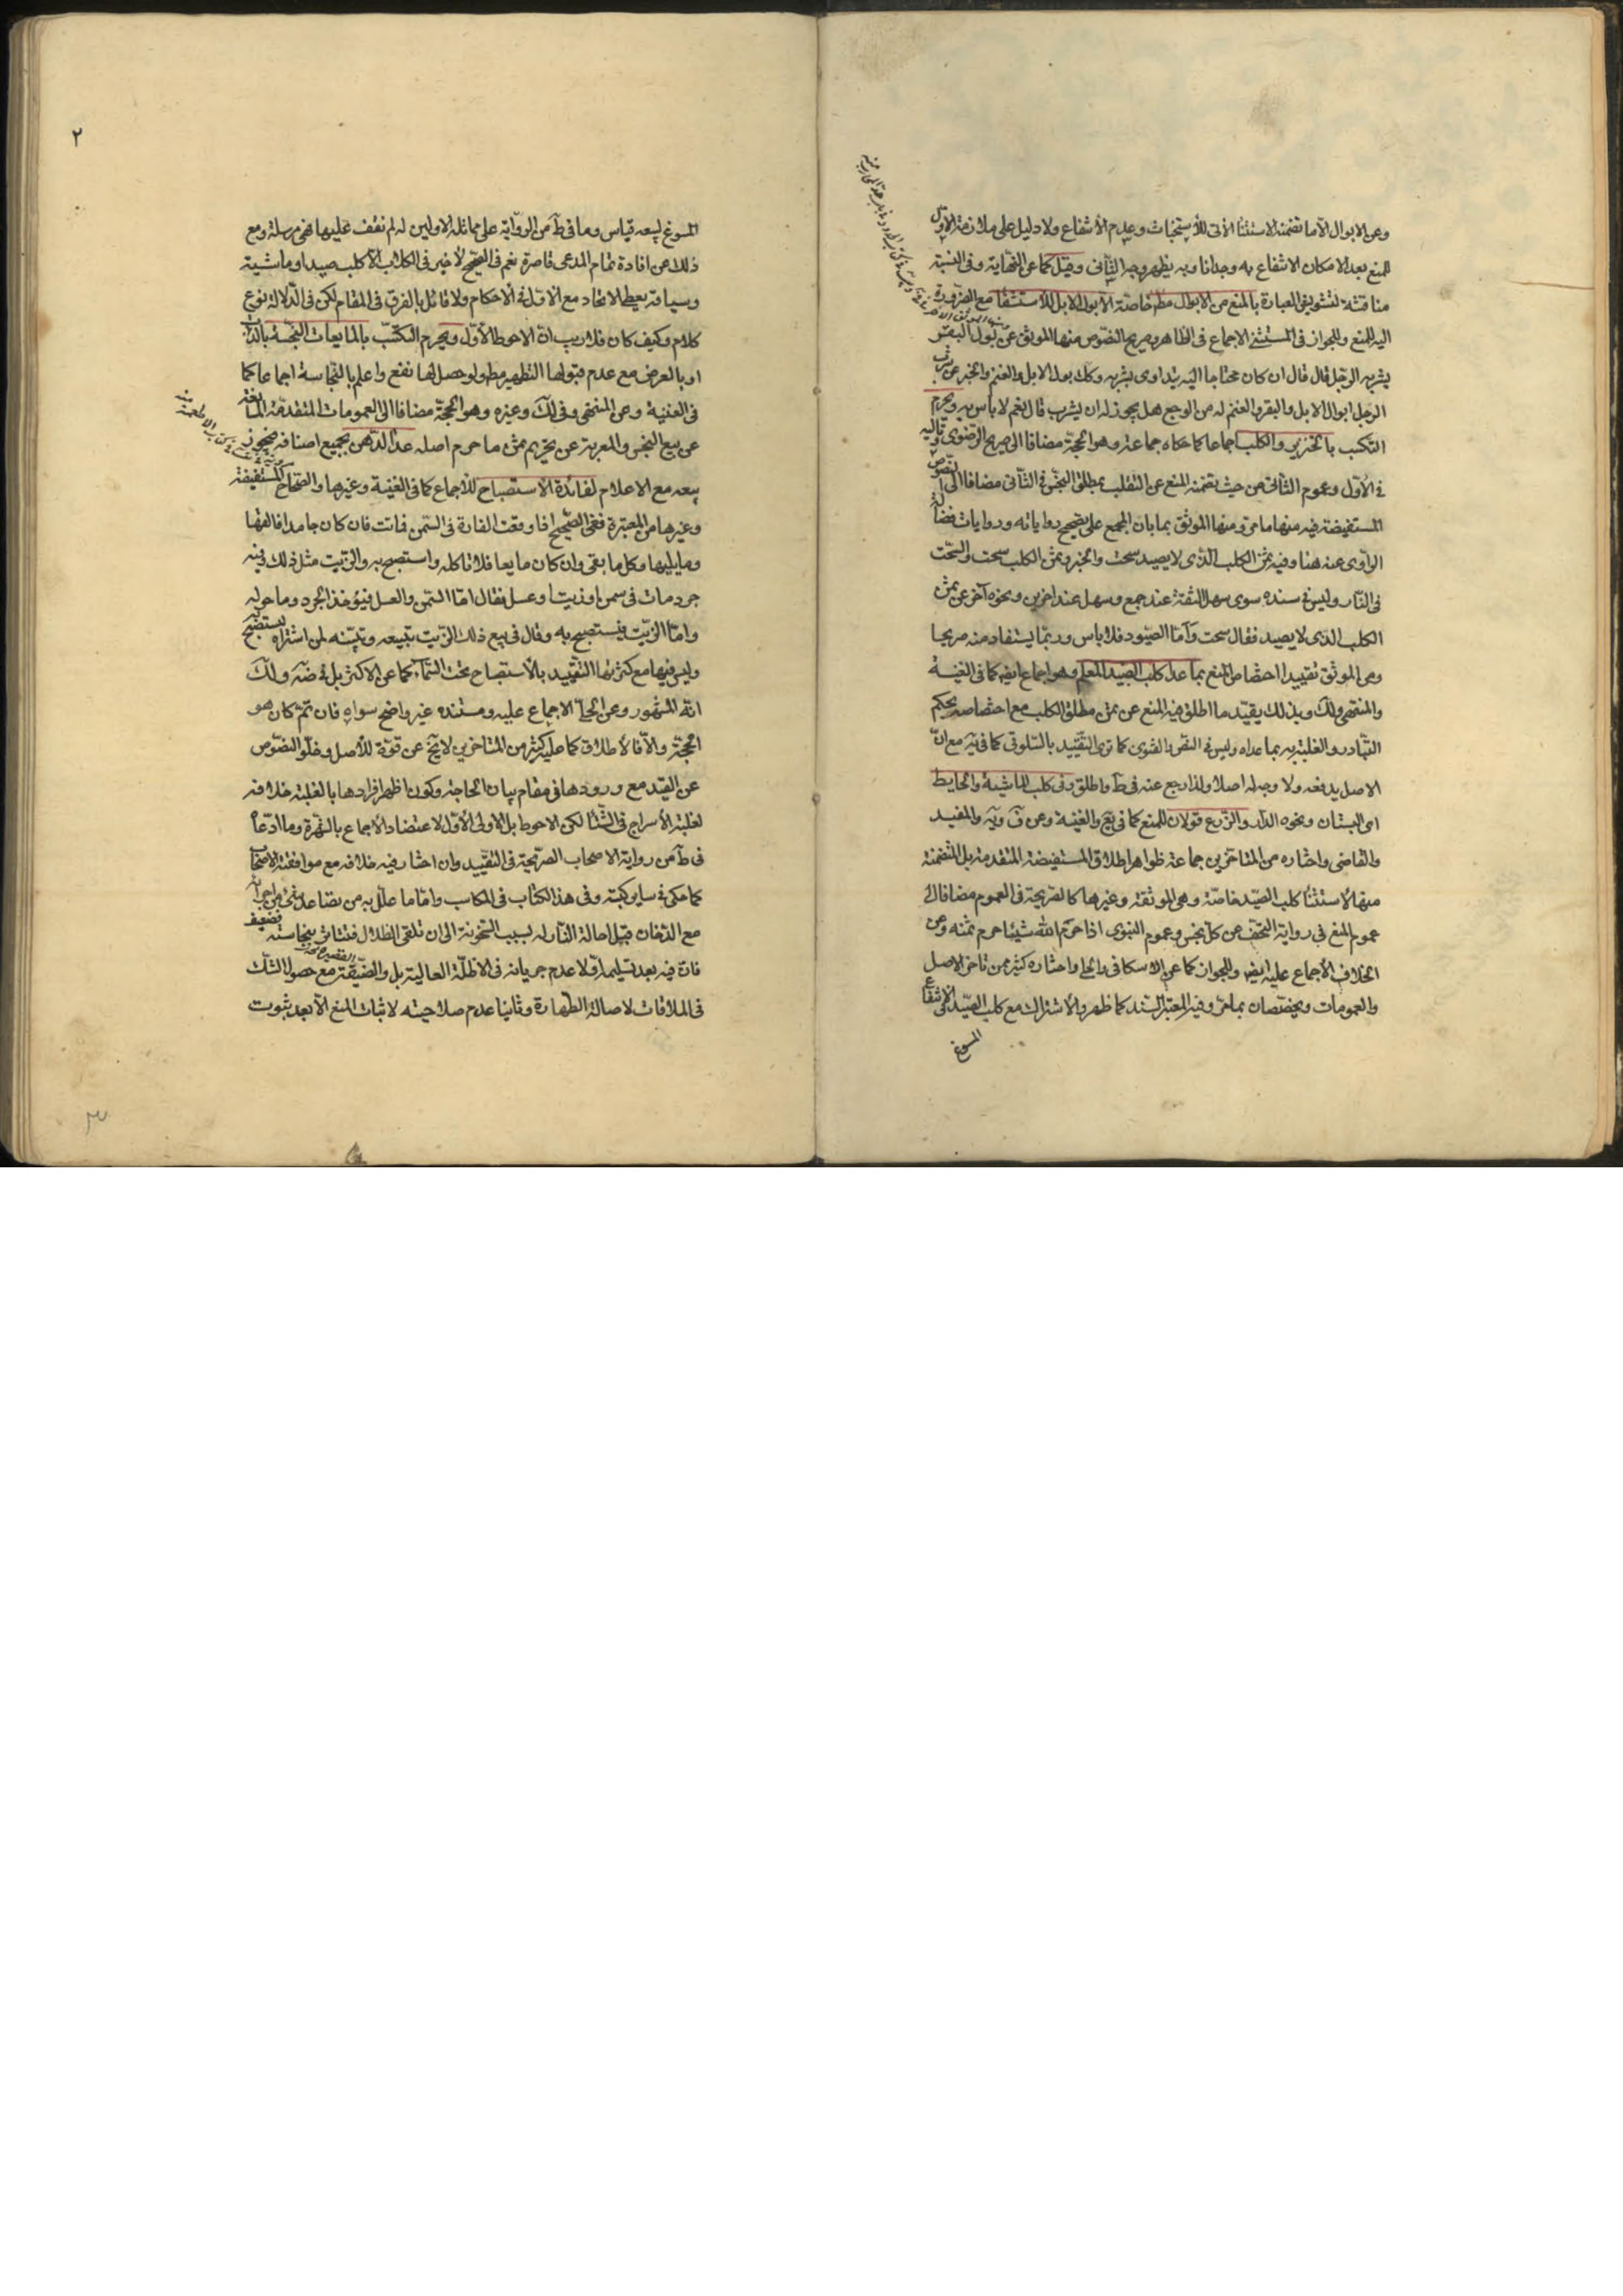 وعن الابوال الا ما تضمنه الاستثنا الآتى للاستخباث وعدم الانتفاع ولا دليل على ملازمة الاول
للمنع بعد الامكان الانتفاع به وجدانا وبه يظهر وجه الثانى وقيل كما عن النهاية وفى النسبة
مناقشة لتشويش العبارة بالمنع من الابوال مطم خاصة الا بول الابل للاستشفا مع الضرورة
اليه للمنع وللجواز فى المستثنى الاجماع فى الظاهر وصريح النصوص منها الموثق عن بول البقر
يشربه الرجل قال قال ان كان محتاجا اليه يتداوى بشربه وكك بول الابل والغنم والخبر عن شرب
الرجل ابوال الابل والبقر والغنم له من الوجع هل يجوز له ان يشرب قال نعم لا باس به ويحرم
التكسب بالخنزير والكلب اجماعا كما حكاه جماعة وهو الحجة مضافا الى صريح الرضوى وتاليه
فى الاول وعموم الثانى من حيث تضمنه المنع عن التقلب بمطلق النجس فى الثانى مضافا الى النصوص
المستفيضة فيه منها ما مر ومنها الموثق بما بان المجمع على تصحيح رواياته وروايات فضالة
الراوى عنه هنا وفيه ثمن الكلب الذى لا يصيد سحت والخبر وثمن الكلب سحت والسحت
فى النار وليس فى سنده سوى سهل الثقة عند جمع وسهل عند اخرين ونحوه آخر عن ثمن
الكلب الذى لا يصيد فقال سحت واما الصيود فلا باس وربما يستفاد منه صريحا
ومن الموثق تقييدا اختصاص المنع بما عدا كلب الصيد المعلم وهو اجماع ايضا كما فى الغنية
والمنتهى ولك وبذلك يقيد ما اطلق فيه المنع عن ثمن مطلق الكلب مع اختصاصه بحكم
التبادر والغلبة به بما عداه وليس فى النص والفتوى كما ترى التقييد بالسلوقى كما فى يه مع ان
الاصل يدفعه ولا وجه له اصلا ولذا رجع عنه فى ط واطلق وفى كلب الماشية والحايط
اى البستان ونحوه الدار والزرع قولان للمنع كما فى يع والغنية وعن ف ويه والمفيد
والقاضى واختاره من المتاخرين جماعة ظواهر اطلاق المستفيضة المتقدمة بل المتضمنة
منها لاستثنا كلب الصيد خاصة وهى الموثقة وغيرها كالصريحة فى العموم مضافا الى
عموم المنع فى رواية التحف عن كل نجس وعموم النبوى اذا حرم الله شيئا حرم ثمنه وعن
الخلاف الاجماع عليه ايضا وللجواز كما عن الاسكافى والحلى واختاره كثير ممن تاخر الاصل
والعمومات ويخصصان بما مر وفيه المعتبر السند كما ظهر والاشتراك مع كلب الصيد فى الانتفاع
المسوغ
٢
المسوغ لبيعه قياس وما فى ط من الرواية على مماثلة الاولين له لم نقف عليها فهى مرسلة ومع
ذلك عن افادة تمام المدعى قاصرة نعم فى الصحيح لا خير فى الكلاب الا كلب صيد او ماشية
وسياقه يعطى الاتحاد مع الاول فى الاحكام ولا قائل بالفرق فى المقام لكن فى الدلالة نوع
كلام وكيف كان فلا ريب ان الاحوط الاول ويحرم التكسب بالمايعات النجسة بالذات
او بالعرض مع عدم قبولها التطهير مطم ولو حصل لها نفع واعلم بالنجاسة اجماعا كما
فى الغنية وعن المنتهى وفى لك وغيره وهو الحجة مضافا الى العمومات المتقدمة المانعة
عن بيع النجس والمعربة عن تحريم ثمن ما حرم اصله عدا الدهن بجميع اصنافه فيجوز
بيعه مع الاعلام لفائدة الاستصباح للاجماع كما فى الغنية وغيرها والصحاح المستفيضة
وغيرها من المعتبرة ففى الصحيح اذا وقعت الفارة فى السمن فماتت فان كان جامدا فالقها
وما يليها وكل ما بقى وان كان مايعا فلا تاكله واستصبح به والزيت مثل ذلك وفيه
جرد مات فى سمن او زيت او عسل فقال اما السمن والعسل فيؤخذ الجرد وما حوله
واما الزيت فيستصبح به وقال فى بيع ذلك الزيت تبيعه وتبينه لمن اشتراه ليستصبح به
وليس فيها مع كثرتها التقييد بالاستصباح تحت السماء كما عن الاكثر بل فى ضه ولك
انه المشهور وعن الحلى الاجماع عليه ومستنده غير واضح سواه فان تم كان هو
الحجة والا فالاطلاق كما عليه كثير من المتاخرين لا يخ عن قوة للاصل وخلو النصوص
عن القيد مع ورودها فى مقام بيان الحاجة وكون اظهر افرادها بالغلبة خلافه
لغلبة الاسراج فى الشتا لكن الاحوط بل الاولى الاول لاعتضاد الاجماع بالشهرة وما ادعاه
فى ط من رواية الاصحاب الصريحة فى التقييد وان اختار فيه خلافه مع موافقته الاصحاب
كما حكى فى ساير كتبه وفى هذا الكتاب فى المكاسب واما ما علل به من تصاعد شئ من اجزائه
مع الدخان قبل احالة النار له بسبب السخونة الى ان تلقى الظلال فتتاثر بنجاسته فضعيف
فان فيه بعد تسليمه اولا عدم جريانه فى الاظلة العالية بل والضيقة مع حصول الشك
فى الملاقات لاصالة الطهارة وثانيا عدم صلاحيته لاثبات المنع الا بعد ثبوت